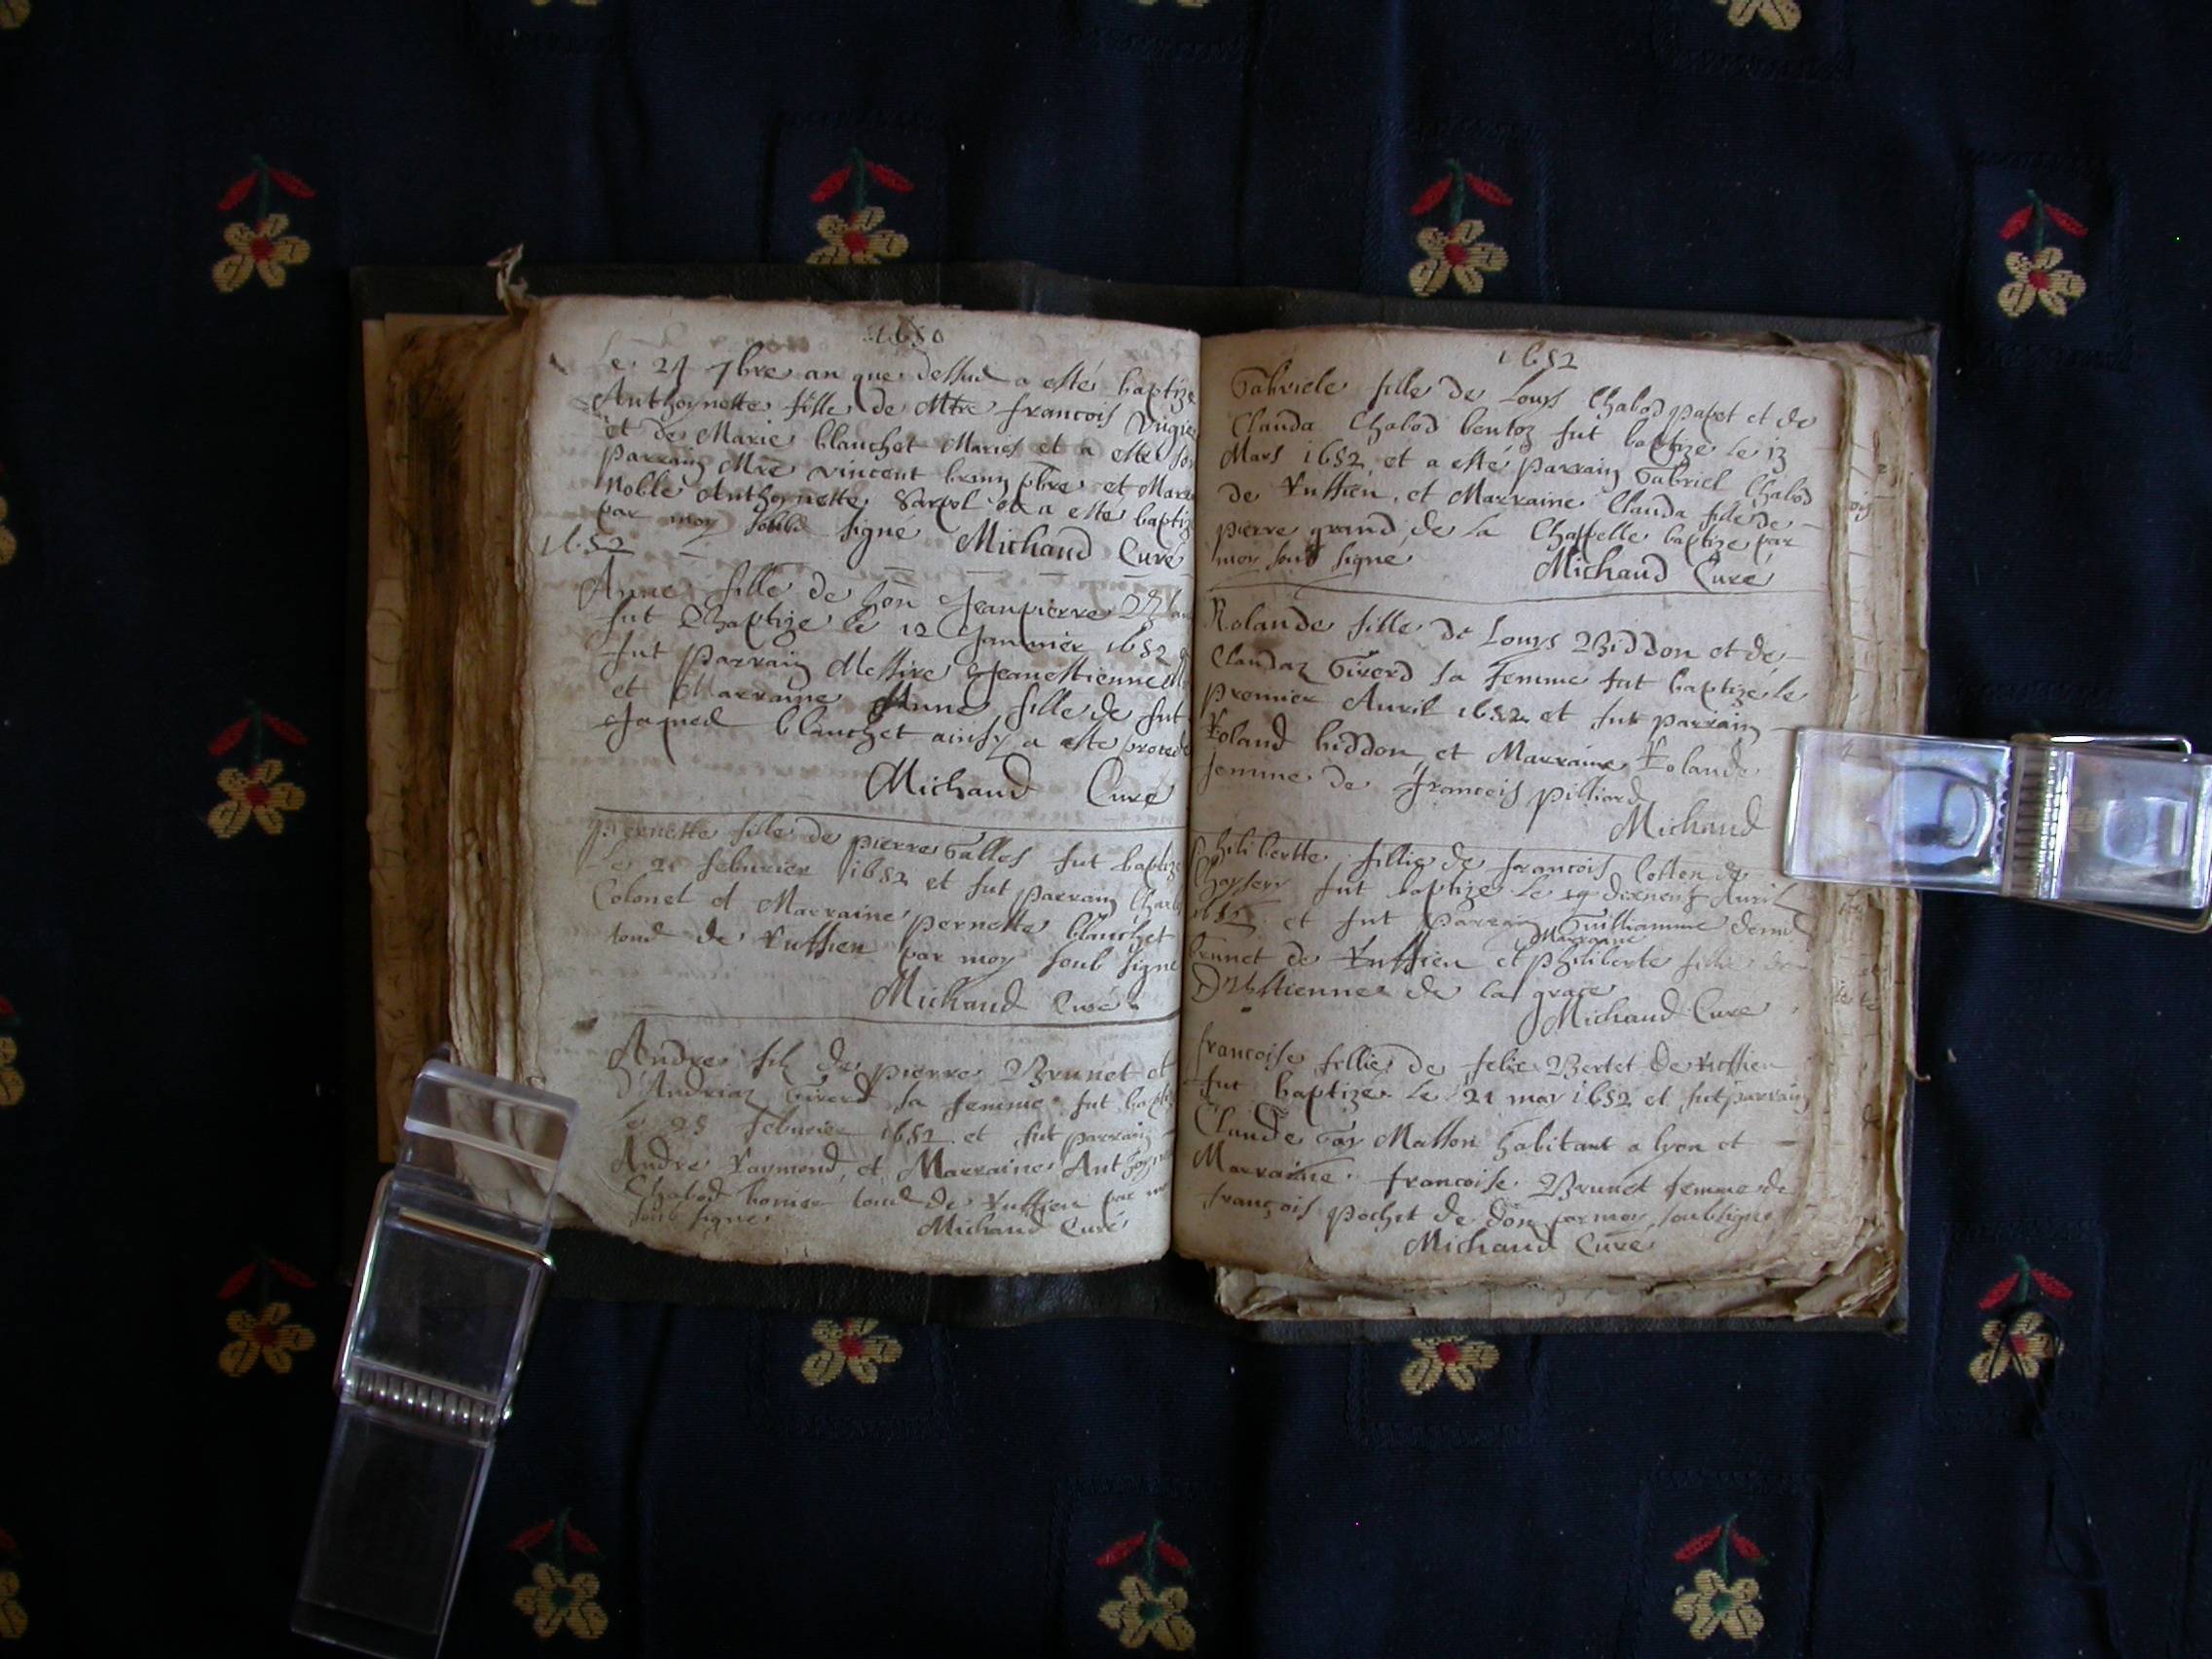 1650
Le 24 7bre an que dessus a esté baptizé
Anthoynette fille de Mtre francois
et de Marie blanchet Maries et a esté son
parrain Mre vincent brun pbre et Marr
Noble Anthoynette Sarpol et a este baptiz
par moy soubs signe Michaud Curé
1652
Anne fille de hon Jeanpierre
fut Bbaptize le 12 Janvier 1652
fut parrain Messire Jeanestienne
et Marraine Anne fille de fut
Jaques blanchet ainsy a este procede
Michaud Cure
pernette fille de pierre Galles fut baptize
le 21 feburier 1652 et fut parrain Charle
Colonel et Marraine pernette blanchet
tous de Ruffieu par moy soub signe
Michaud Curé
Andre filz de pierre Brunet et
d'Andriaz Girerd sa femme fut bapti
le 25 feburier 1652 et fut parrain
André Raymond et Marraine Anthoyn
Chabod tous de Ruffieu par m
soub signe Michaud Curé
1652
Gabriele fille de Louys Chabod papet et de
Clauda Chabod bentoz fut baptize le 13
Mars 1652 et a esté parrain Gabriel Chabod
de Ruffieu, et Marraine Clauda fille de
pierre grand de la Chappelle baptize par
moy soub signe Michaud Curé
Rolande fille de Louys Biddon et de
Claudaz Girerd sa femme fut baptizé le
premier Avril 1652 et fut parrain
Roland biddon et Marraine Rolande
femme de francois pilliard
Michaud
philibertte fillie de francois Cotten de
fut baptize le 19 dixneuf Avril
1652 et fut parrain Guilliaume
Marraine
brunet de Ruffieu et philiberte fillie de
D'Estienne de la grace
Michaud Cure
francoise fillie de felix Bertet de Ruffieu
fut baptize le 21 may 1652 et fut parrain
Claude Gay Masson habitant a lyon et
Marraine francoise Brunet femme de
françois pochet de don par moy soubsigne
Michaud Cure